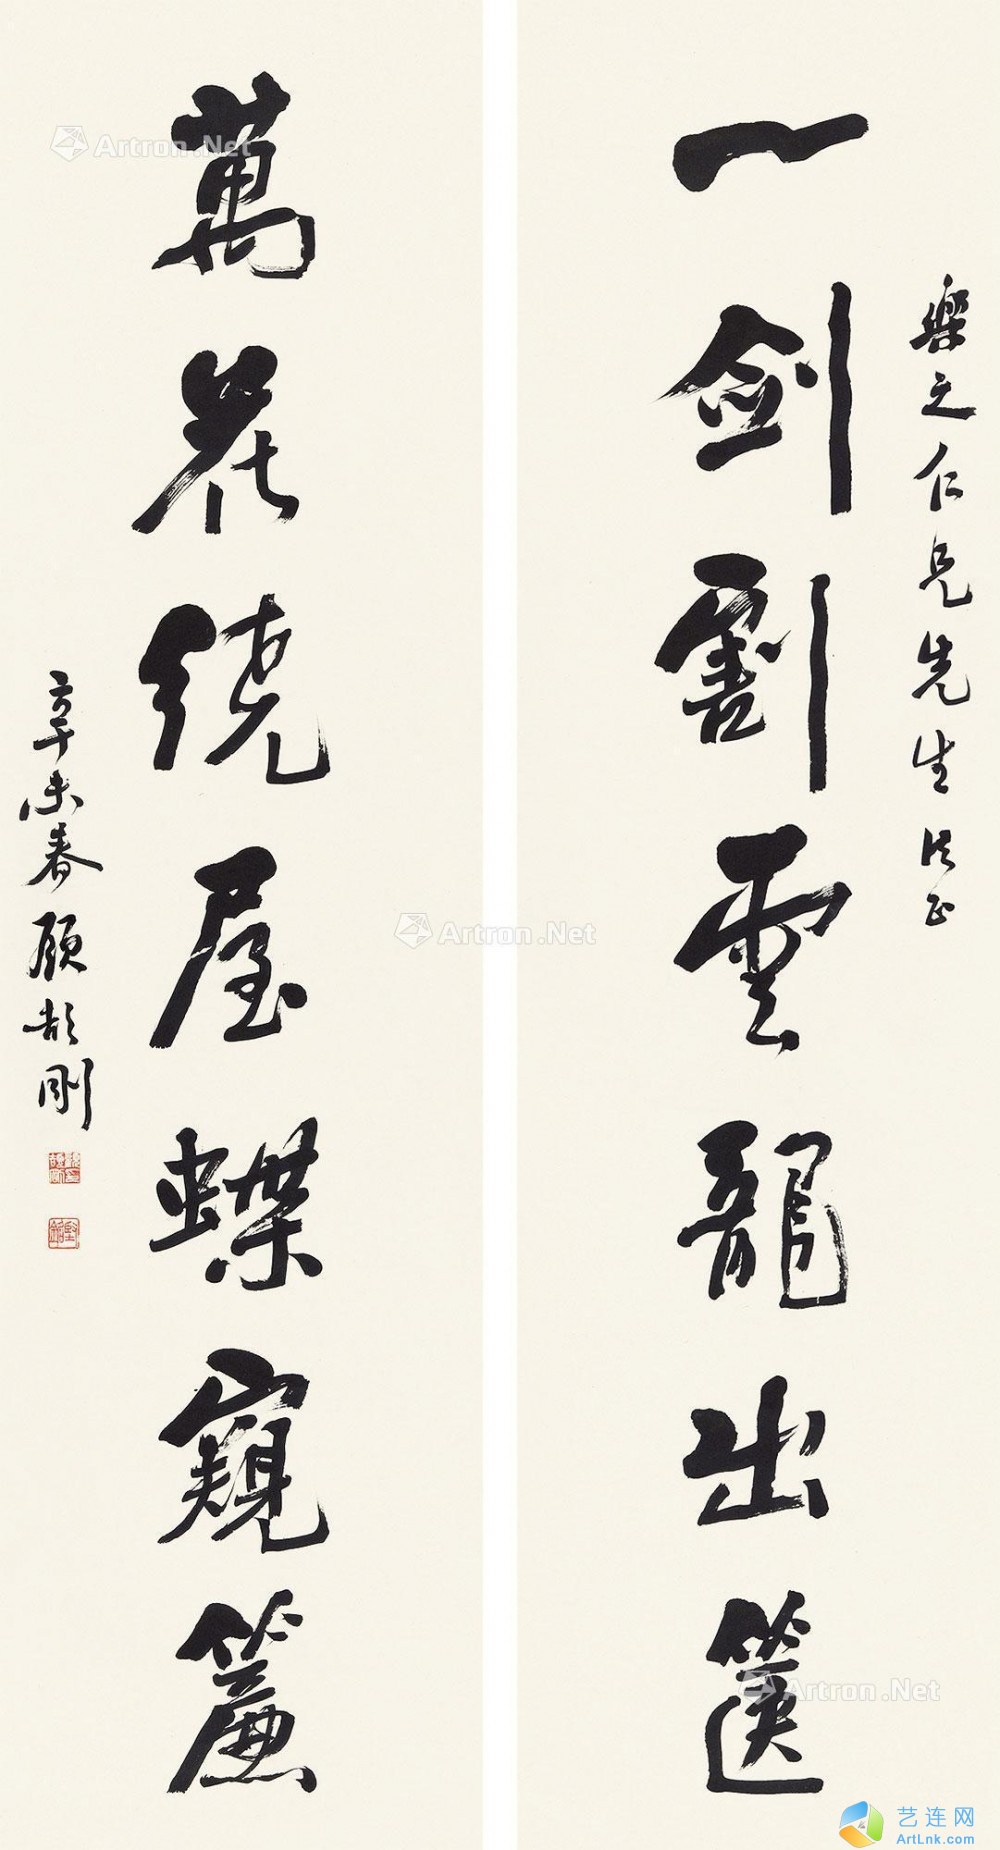 樂之仁兄先生法正
一剑劃雲龍出篋
萬花繞屋蝶窺簾
辛未春顧頡剛
Artron.Net
Artron.Net
Artron.Net
艺连网
ArtLnk.com